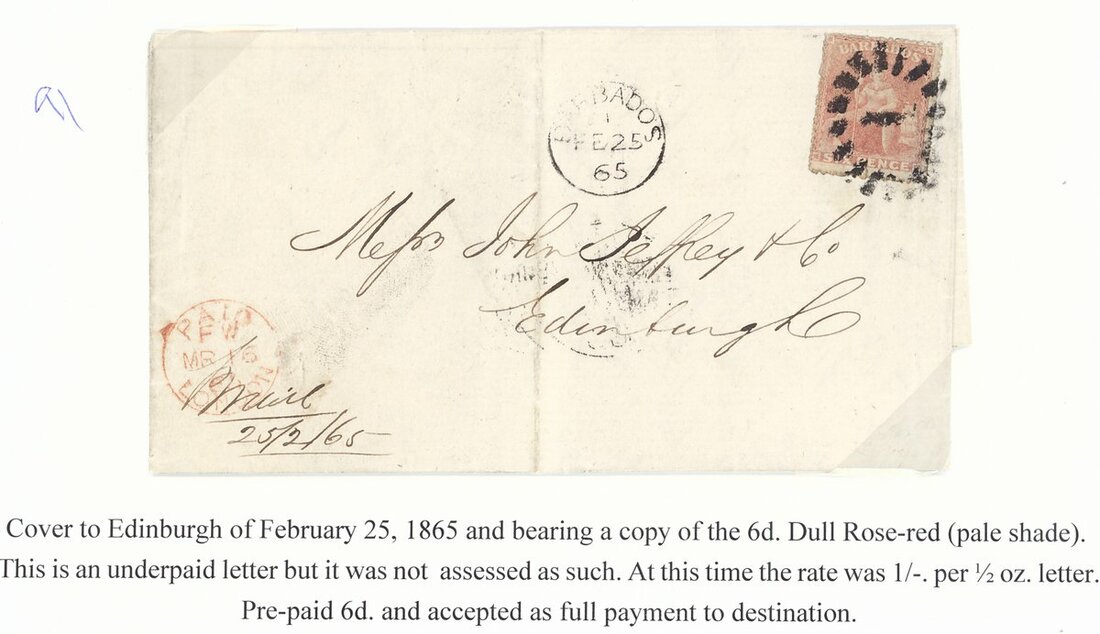 BARBADOS
SIX PENCE
1
BARBADOS
1
FE 25
65
Messrs John Jeffrey & Co
Edinburgh
PAID
MR 16
LONDON
P Mail
25/2/65
Cover to Edinburgh of February 25, 1865 and bearing a copy of the 6d. Dull Rose-red (pale shade).
This is an underpaid letter but it was not assessed as such. At this time the rate was 1/-. per ½ oz. letter.
Pre-paid 6d. and accepted as full payment to destination.